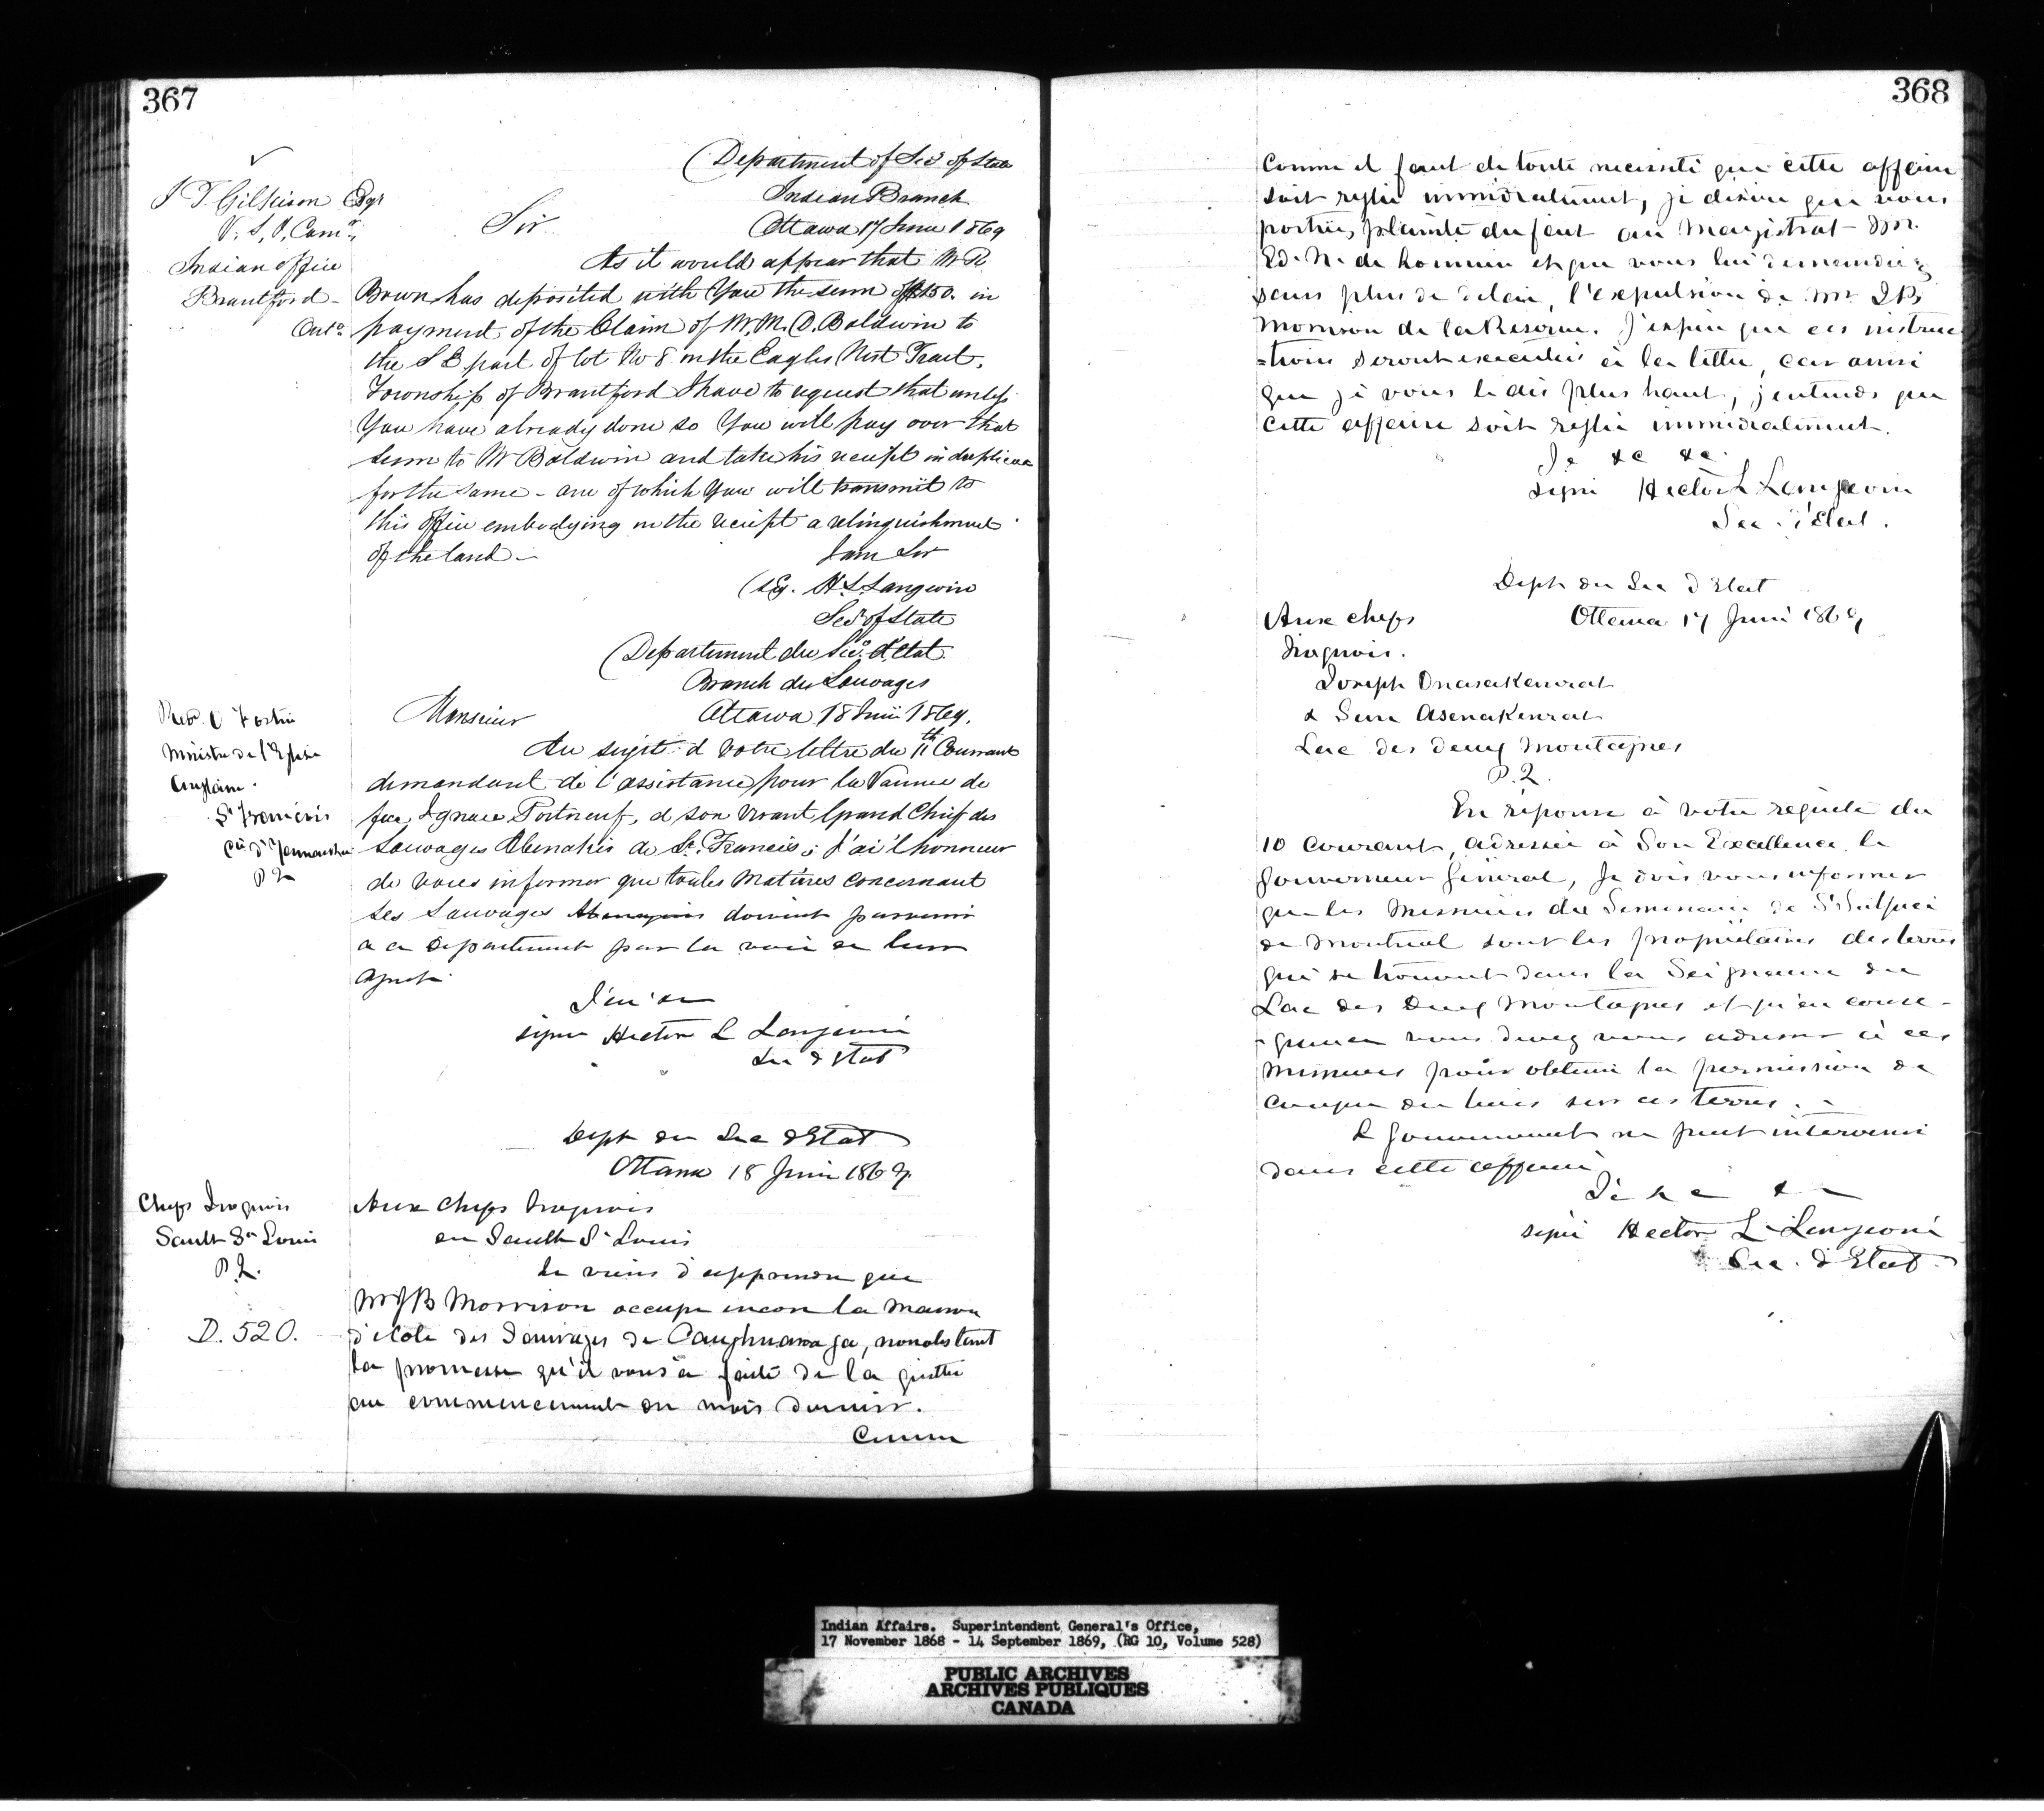 367
Department of Sec of State
Indian Branch
Ottawa 17 June 1869
J T. Gilkison Esqr
V. S, I, Comr,
Indian Office
Brantford -
Onto
Sir
As it would appear that W R
Bown has deposited with You the sum of $150. in
payment of the Claim of W. M. C. Baldwin to
the S E part of lot No 8 in the Eagles Nest Tract,
Township of Brantford I have to request that unless
You have already done so You will pay over that
sum to Mr Baldwin and take his receipt in duplicate
for the same - one of which You will transmit to
this Office embodying in the receipt a relinquishment
of the land -
I am Sir
(Sg. H. L. Langevin
Secy of State
Departement du Sec. d'Etat
Branch des Sauvages
Ottawa 18 Juin 1869.
Revd. O Fortin
Ministre de l'Eglise
Anglaise.
St Francois
P Q
Monsieur
Au sujet d votre lettre du 11th Courrant
demandant de l'assistance pour la Veuve de
feu Ignace Portneuf, d son vivant Grand Chief des
Sauvages Abenakis de St. Francis; J'ai l'honneur
de vous informer que toutes Matières concernant
les Sauvages doivent parvenir
a ce Departement par la voie de leur
agent.
J'ai &c
signé Hector L Langevin
Sec d'Etat
Dept du Sec d'Etat
Ottawa 18 Juin 1869.
Chefs Iroquois
Sault St Louis
P. Q.
D. 520.
Aux Chefs Iroquois
du Sault St Louis
Je viens d'apprendre que
Mr J B Morrison occupe encore la maison
d'école des Sauvages de Caughnawaga, nonobstant
la promesse qu'il vous a faite de la quitter
au commencement du mois dernier.
Comme
368
Comme il faut de toute necessité que cette affaire
soit reglée immédiatement, je désire que vous
portiez plainte du fait au Magistrat Mr.
Ed. N. de Lorimier et que vous lui demandiez
sans plus de delai, l'expulsion de Mr. J B
Morrison de la Reserve. J'espère que ces instruc
-tions seront executées à la lettre, car ainsi
que je vous le dis plus haut, j'entends que
cette affaire soit reglée immédiatement.
Je &c &c.
signé Hector L Langevin
Sec. d'Etat.
Dept du Sec d'Etat
Ottawa 17 Juin 1869
Aux chefs
Iroquois.
Joseph Onasakenrat
Lac des deux Montagnes
P. Q.
En réponse à votre requête du
10 courant, adressée à Son Excellence le
Gouverneur Général, Je dois vous informer
que les Messieurs du Seminaire de St Sulpice
de Montreal sont les propriétaires des terres
qui se trouvent dans la Seigneurie du
Lac des Deux Montagnes et qu'en conse-
-quence vous devez vous adresser à ces
Messieurs pour obtenir la permission de
couper du bois sur ces terres. -
Le Gouvernement ne peut intervenir
dans cette affaire
J'ai &c
signé Hector L Langevin
Sec. d'Etat
Indian Affairs. Superintendent General's Office,
17 November 1868 - 14 September 1869, (RG 10, Volume 528)
PUBLIC ARCHIVES
ARCHIVES PUBLIQUES
CANADA